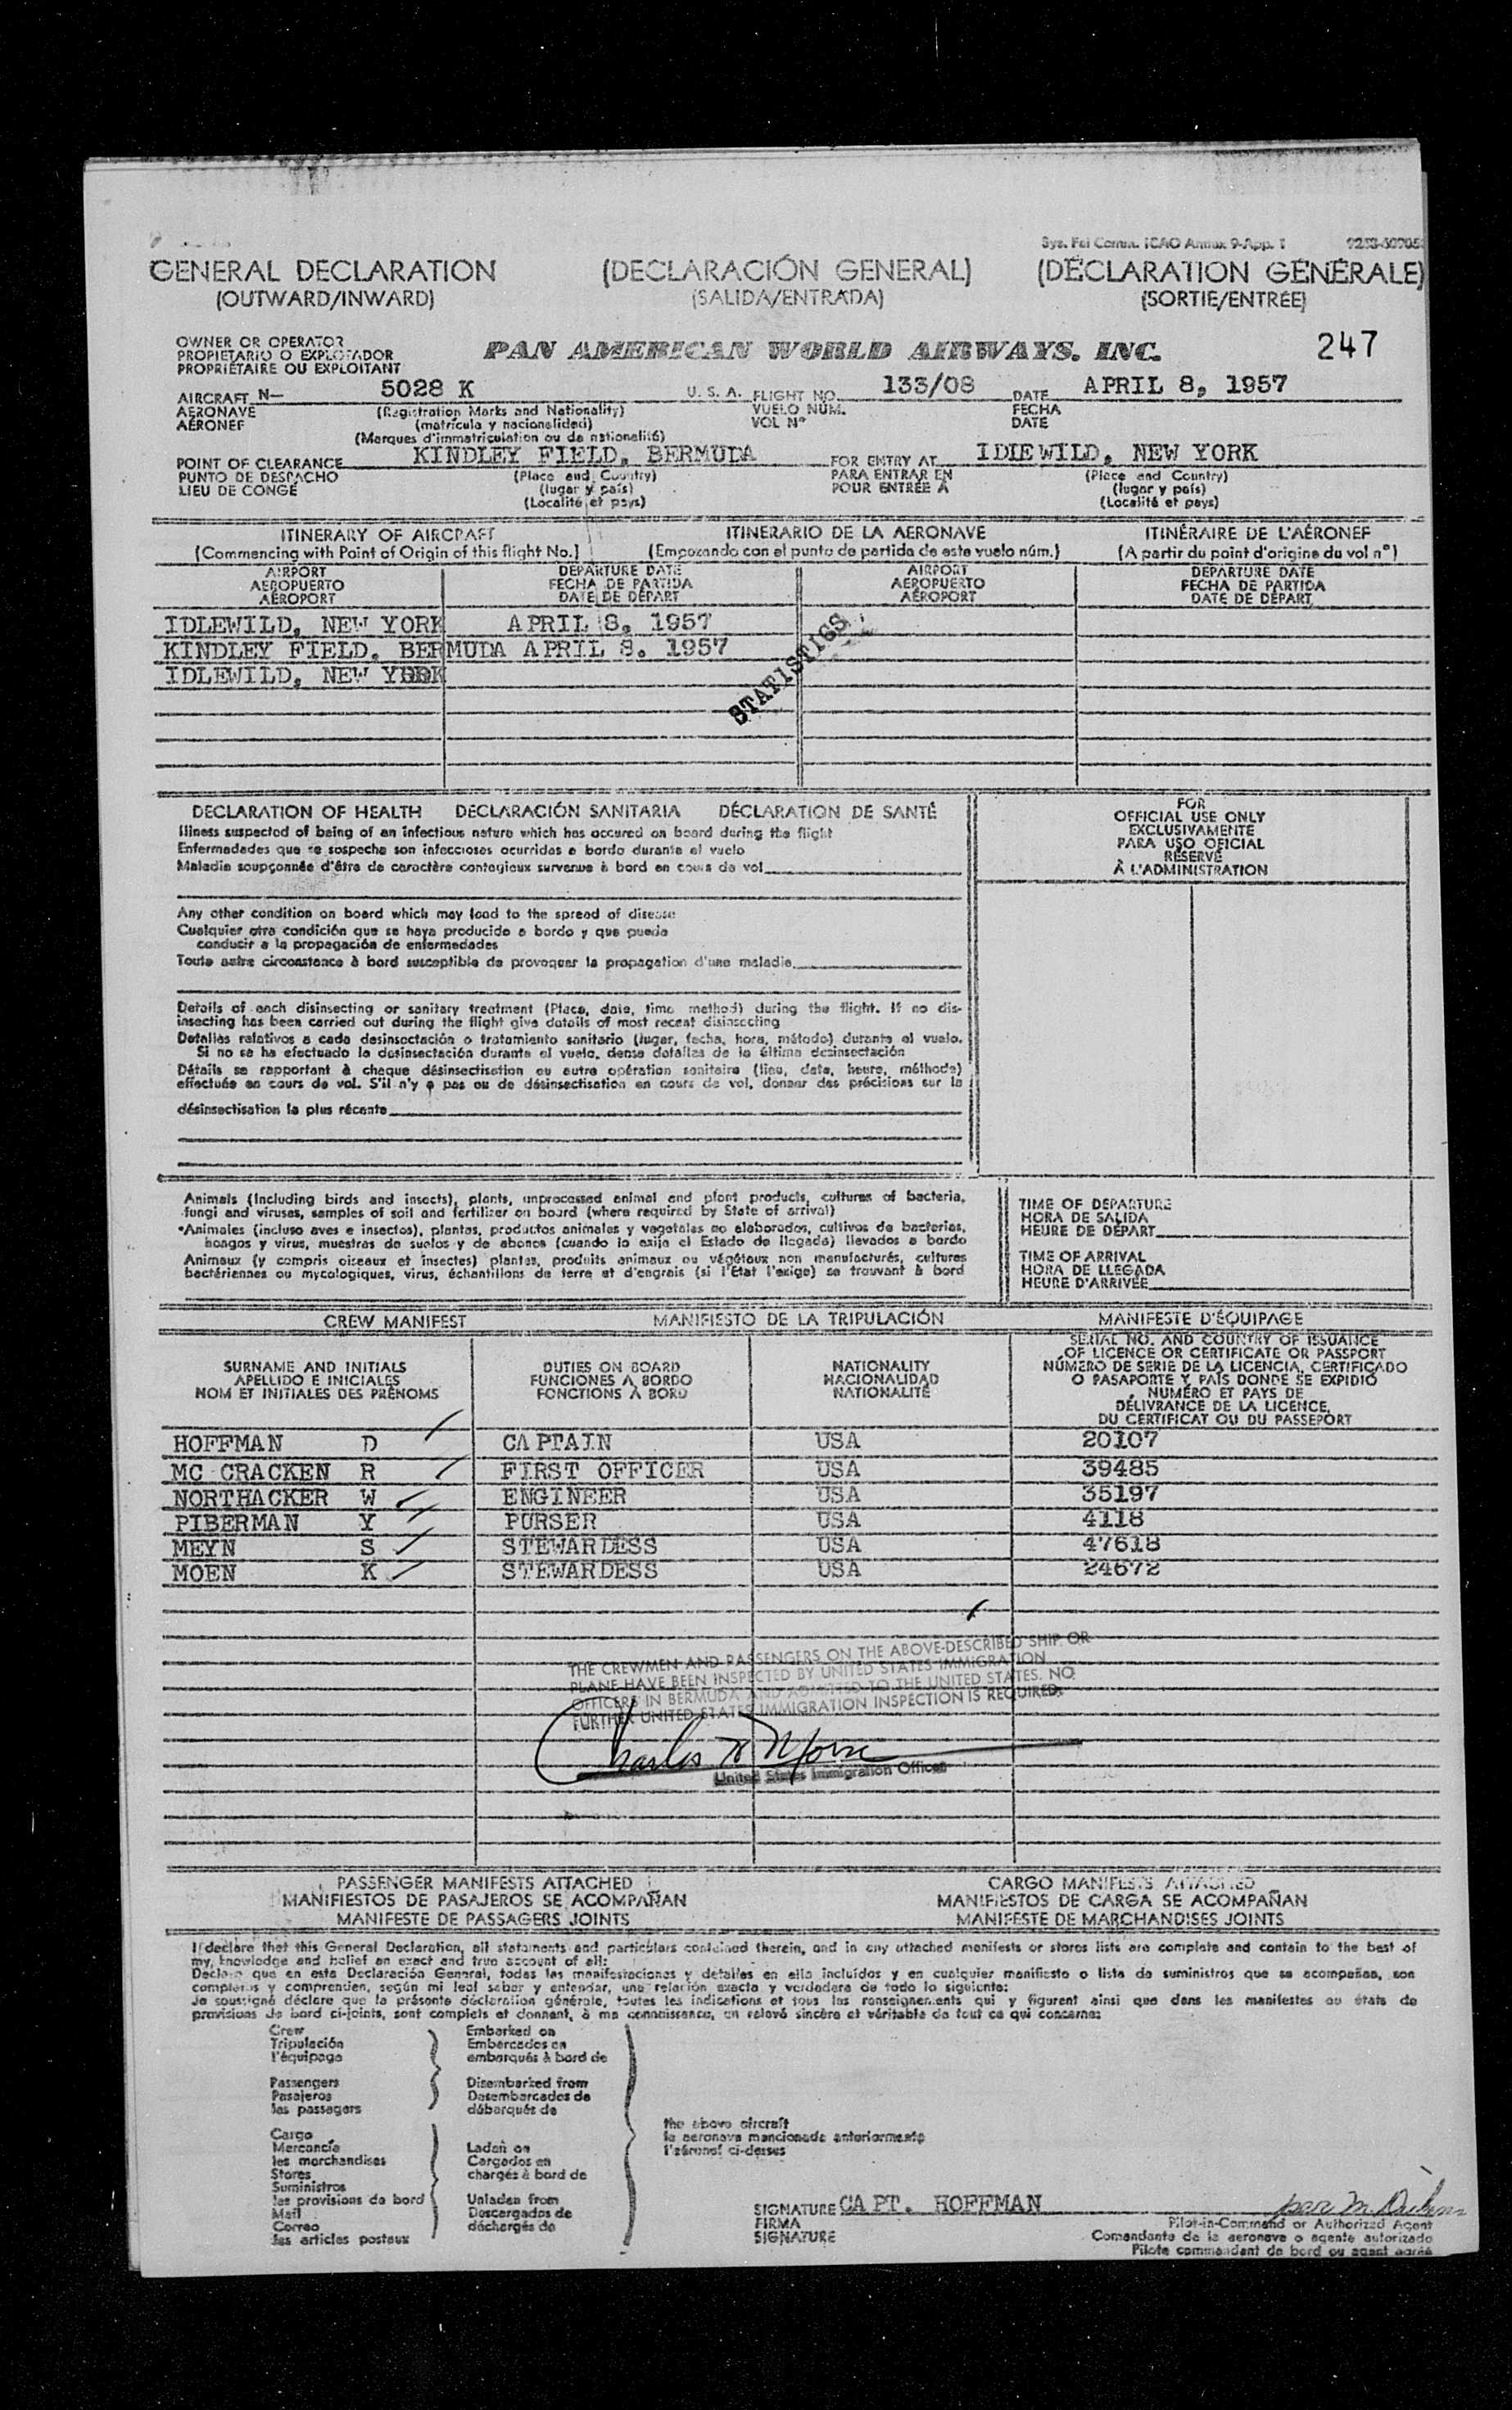 Sys. Fel Comm. ICAO Annex 9-App. 1
GENERAL DECLARATION (DECLARACIÓN GENERAL) (DÉCLARATION GÉNÉRALE)
(OUTWARD/INWARD) (SALIDA/ENTRADA) (SORTIE/ENTRÉE)
OWNER OR OPERATOR
PROPIETARIO O EXPLOTADOR PAN AMERICAN WORLD AIRWAYS, INC. 247
PROPRIÉTAIRE OU EXPLOITANT
AIRCRAFT N— 5028 K U. S. A. FLIGHT NO. 133/08 DATE APRIL 8, 1957
AERONAVE (Registration Marks and Nationality) VUELO NÚM. FECHA
AÉRONEF (matrícula y nacionalidad) VOL Nº DATE
(Marques d'immatriculation ou de nationalité)
POINT OF CLEARANCE KINDLEY FIELD, BERMUDA FOR ENTRY AT IDIEWILD, NEW YORK
PUNTO DE DESPACHO (Place and Country) PARA ENTRAR EN (Place and Country)
LIEU DE CONGÉ (lugar y país) POUR ENTRÉE À (lugar y país)
(Localité et pays) (Localité et pays)
ITINERARY OF AIRCRAFT ITINERARIO DE LA AERONAVE ITINÉRAIRE DE L'AÉRONEF
(Commencing with Point of Origin of this flight No.) (Empezando con el punto de partida de este vuelo núm.) (A partir du point d'origine du vol nº)
AIRPORT DEPARTURE DATE AIRPORT DEPARTURE DATE
AEROPUERTO FECHA DE PARTIDA AEROPUERTO FECHA DE PARTIDA
AÉROPORT DATE DE DÉPART AÉROPORT DATE DE DÉPART
IDLEWILD, NEW YORK APRIL 8, 1957
KINDLEY FIELD, BERMUDA APRIL 8. 1957
IDLEWILD, NEW YORK
STATISTICS
DECLARATION OF HEALTH DECLARACIÓN SANITARIA DÉCLARATION DE SANTÉ
Illness suspected of being of an infectious nature which has occured on board during the flight
Enfermedades que se sospecha son infecciosas ocurridas a bordo durante el vuelo
Maladie soupçonnée d'être de caractère contagieux survenue à bord en cours de vol
FOR
OFFICIAL USE ONLY
EXCLUSIVAMENTE
PARA USO OFICIAL
RÉSERVÉ
À L'ADMINISTRATION
Any other condition on board which may lead to the spread of disease
Cualquier otra condición que se haya producido a bordo y que pueda
conducir a la propagación de enfermedades
Toute autre circonstance à bord susceptible de provoquer la propagation d'une maladie
Details of each disinsecting or sanitary treatment (Place, date, time method) during the flight. If no dis-
insecting has been carried out during the flight give details of most recent disinsecting
Detalles relativos a cada desinsectación o tratamiento sanitario (lugar, fecha, hora, método) durante el vuelo.
Si no se ha efectuado la desinsectación durante el vuelo, dense detalles de la última desinsectación
Détails se rapportant à chaque désinsectisation ou autre opération sanitaire (lieu, date, heure, méthode)
effectuée en cours de vol. S'il n'y a pas eu de désinsectisation en cours de vol, donner des précisions sur la
désinsectisation la plus récente
Animals (Including birds and insects), plants, unprocessed animal and plant products, cultures of bacteria,
fungi and viruses, samples of soil and fertilizer on board (where required by State of arrival)
*Animales (incluso aves e insectos), plantas, productos animales y vegetales no elaborados, cultivos de bacterias,
hongos y virus, muestras de suelos y de abonos (cuando lo exija el Estado de llegada) llevados a bordo
Animaux (y compris oiseaux et insectes) plantes, produits animaux ou végétaux non manufacturés, cultures
bactériennes ou mycologiques, virus, échantillons de terre et d'engrais (si l'État l'exige) se trouvant à bord
TIME OF DEPARTURE
HORA DE SALIDA
HEURE DE DÉPART
TIME OF ARRIVAL
HORA DE LLEGADA
HEURE D'ARRIVÉE
CREW MANIFEST MANIFIESTO DE LA TRIPULACIÓN MANIFESTE D'ÉQUIPAGE
SURNAME AND INITIALS
APELLIDO E INICIALES
NOM ET INITIALES DES PRÉNOMS
DUTIES ON BOARD
FUNCIONES A BORDO
FONCTIONS À BORD
NATIONALITY
NACIONALIDAD
NATIONALITÉ
SERIAL NO. AND COUNTRY OF ISSUANCE
OF LICENCE OR CERTIFICATE OR PASSPORT
NÚMERO DE SERIE DE LA LICENCIA, CERTIFICADO
O PASAPORTE Y PAÍS DONDE SE EXPIDIÓ
NUMÉRO ET PAYS DE
DÉLIVRANCE DE LA LICENCE,
DU CERTIFICAT OU DU PASSEPORT
HOFFMAN D CAPTAIN USA 20107
MC CRACKEN R FIRST OFFICER USA 39485
NORTHACKER W ENGINEER USA 35197
PIBERMAN Y PURSER USA 4118
MEYN S STEWARDESS USA 47618
MOEN K STEWARDESS USA 24672
THE CREWMEN AND PASSENGERS ON THE ABOVE-DESCRIBED SHIP OR
PLANE HAVE BEEN INSPECTED BY UNITED STATES IMMIGRATION
OFFICERS IN BERMUDA AND ADMITTED TO THE UNITED STATES. NO
FURTHER UNITED STATES IMMIGRATION INSPECTION IS REQUIRED.
Charles
United States Immigration Officer
PASSENGER MANIFESTS ATTACHED CARGO MANIFESTS ATTACHED
MANIFIESTOS DE PASAJEROS SE ACOMPAÑAN MANIFIESTOS DE CARGA SE ACOMPAÑAN
MANIFESTE DE PASSAGERS JOINTS MANIFESTE DE MARCHANDISES JOINTS
I declare that this General Declaration, all statements and particulars contained therein, and in any attached manifests or stores lists are complete and contain to the best of
my, knowledge and belief an exact and true account of all:
Declaro que en esta Declaración General, todas las manifestaciones y detalles en ella incluídos y en cualquier manifiesto o lista de suministros que se acompañan, son
completos y comprenden, según mi leal saber y entender, una relación exacta y verdadera de todo lo siguiente:
Je soussigné déclare que la présente déclaration générale, toutes les indications et tous les renseignements qui y figurent ainsi que dans les manifestes ou états de
provisions de bord ci-joints, sont complets et donnent, à ma connaissance, un relevé sincère et véritable de tout ce qui concerne:
Crew
Tripulación
l'équipage
Passengers
Pasajeros
les passagers
Cargo
Mercancía
les marchandises
Stores
Suministros
les provisions de bord
Mail
Correo
les articles postaux
Embarked on
Embarcados en
embarqués à bord de
Disembarked from
Desembarcados de
débarqués de
Laden on
Cargados en
chargés à bord de
Unladen from
Descargados de
déchargés de
the above aircraft
la aeronave mencionada anteriormente
l'aéronef ci-dessus
SIGNATURE CAPT. HOFFMAN
FIRMA
SIGNATURE
Pilot-in-Command or Authorized Agent
Comandante de la aeronave o agente autorizado
Pilote commandant de bord ou agent agréé